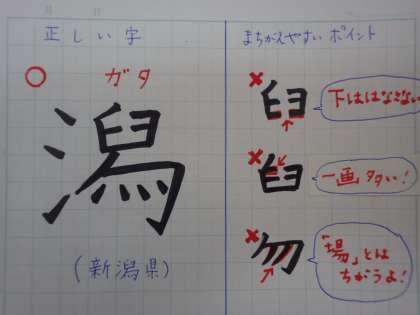 正しい字
ガタ
潟
(新潟県)
まちがえやすいポイント
臼
下ははなさない
臼
一画多い!
勿
「場」とは
ちがうよ!